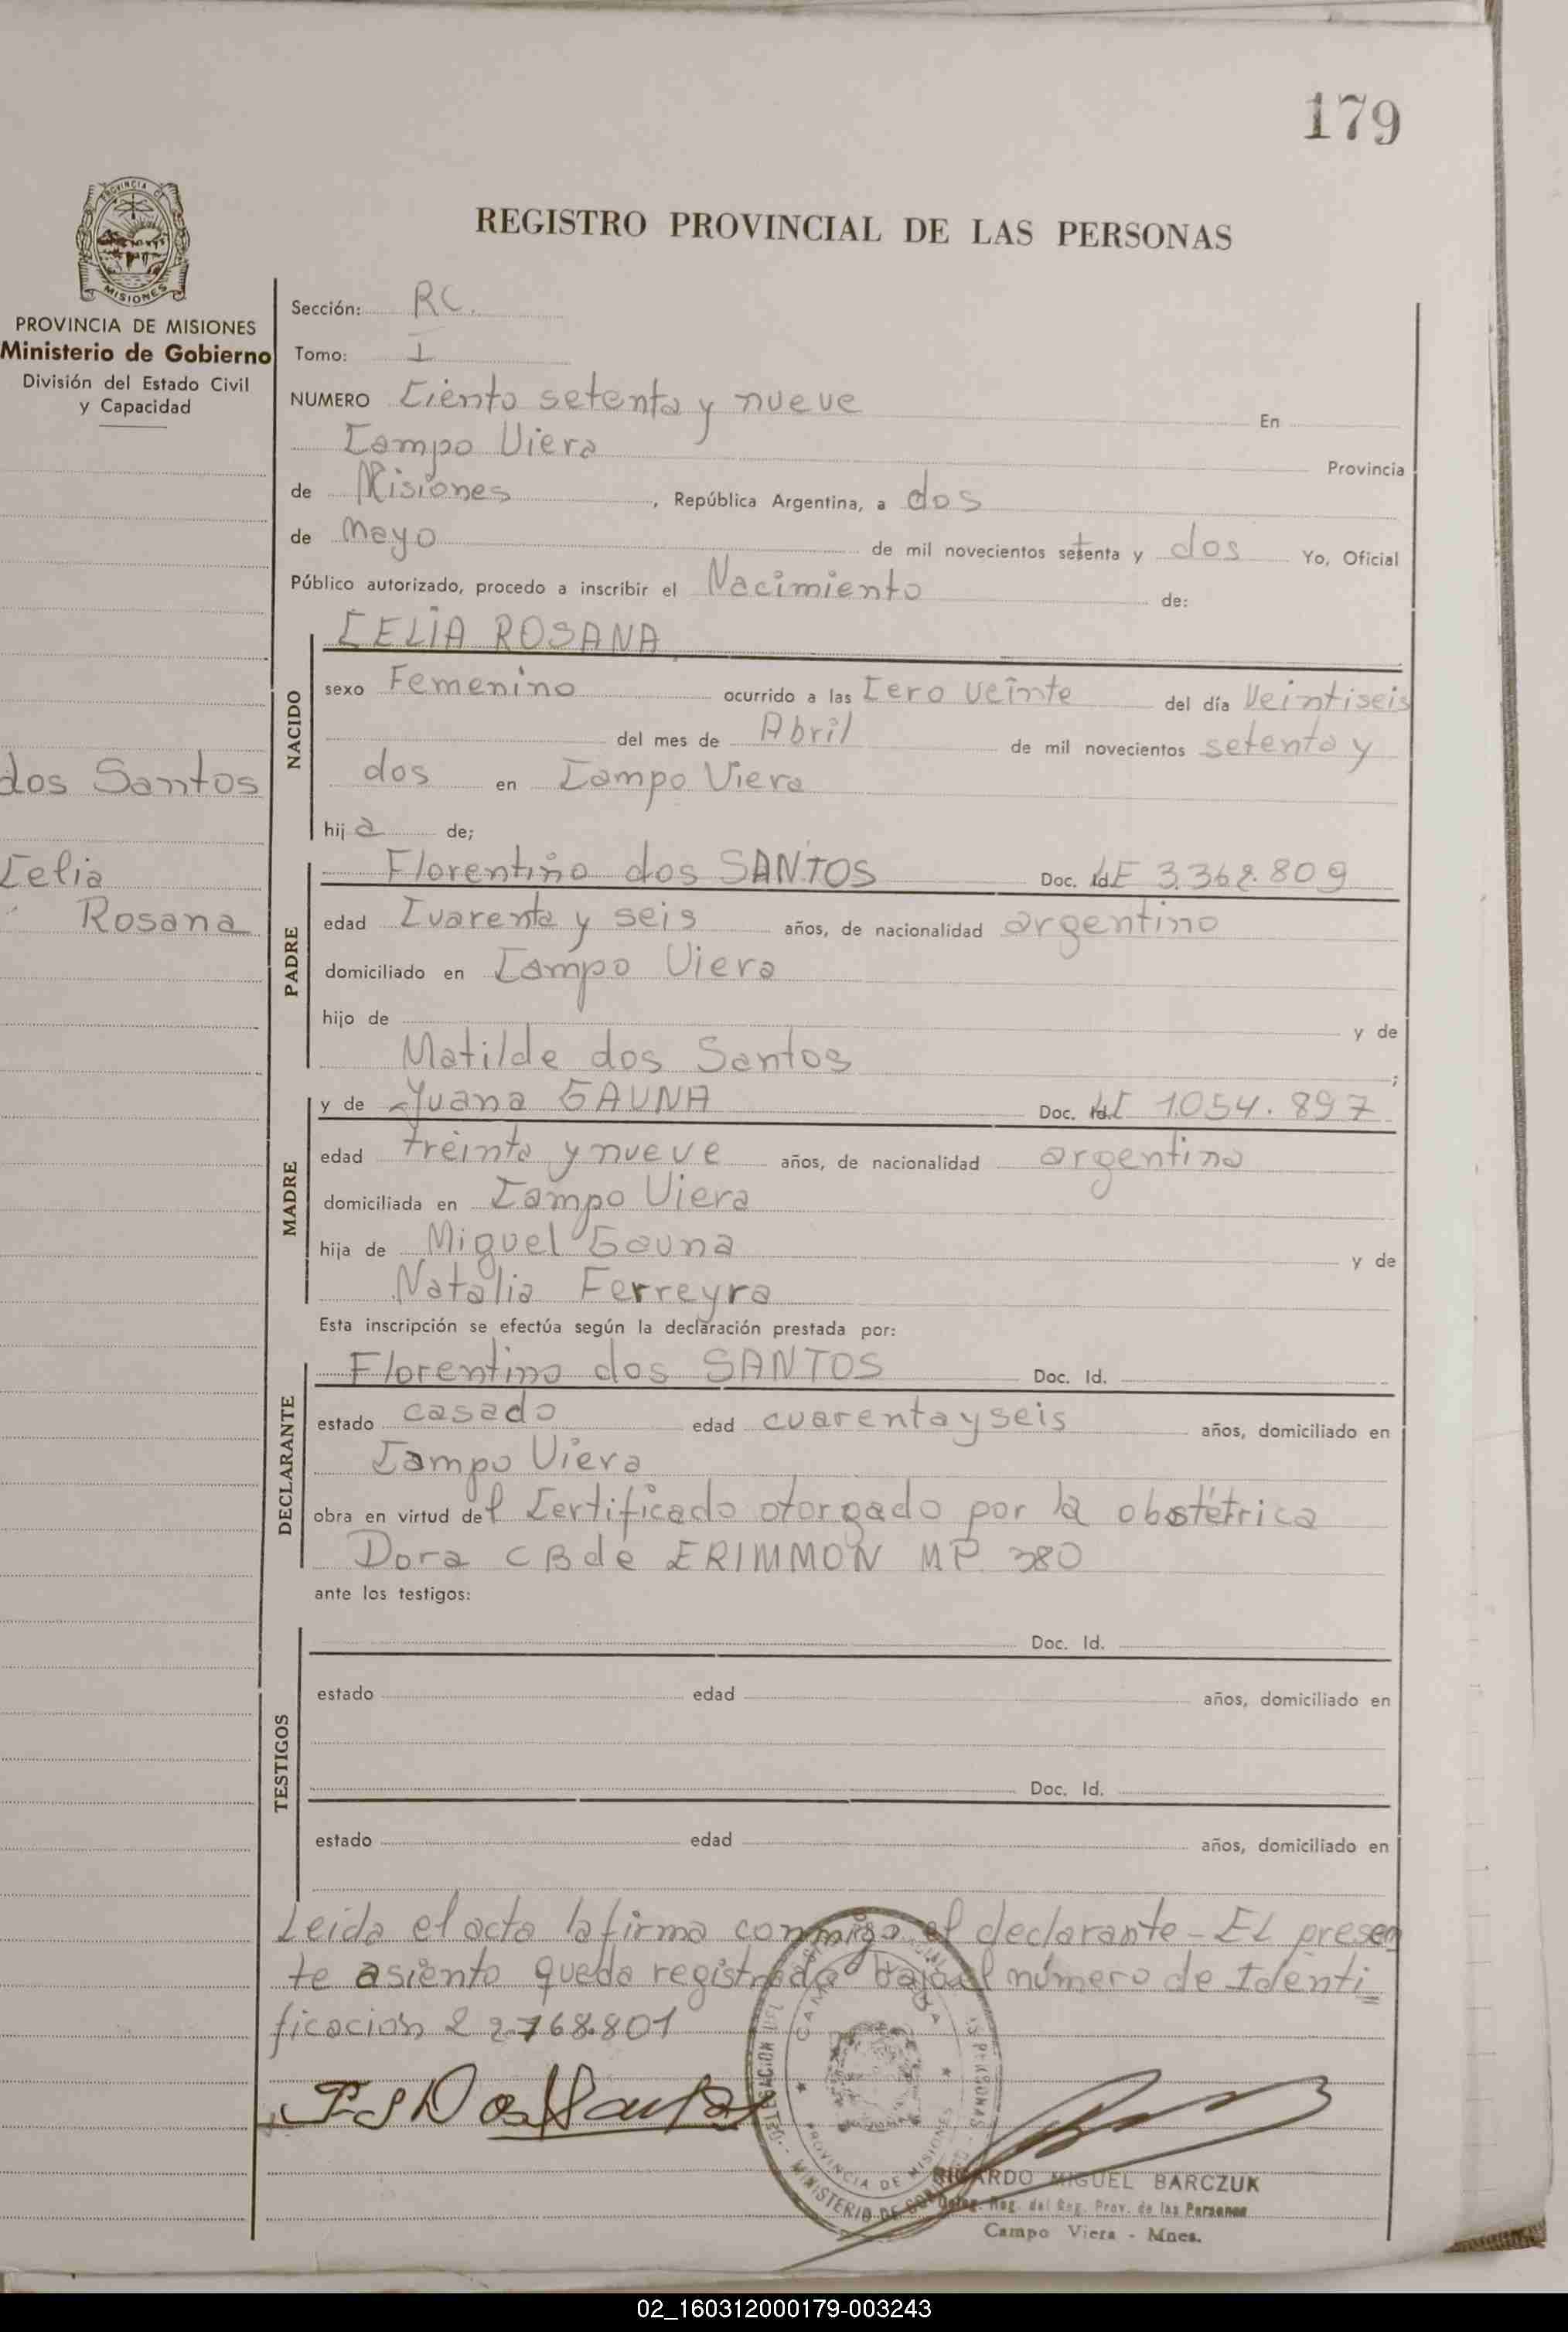 179
PROVINCIA DE MISIONES
REGISTRO PROVINCIAL DE LAS PERSONAS
PROVINCIA DE MISIONES
Ministerio de Gobierno
División del Estado Civil
y Capacidad
Sección: RC.
Tomo: I
NUMERO Ciento setenta y nueve En
Campo Viera Provincia
de Misiones, República Argentina, a dos
de Mayo de mil novecientos setenta y dos Yo, Oficial
Público autorizado, procedo a inscribir el Nacimiento de:
CELIA ROSANA
NACIDO
sexo Femenino ocurrido a las Cero veinte del día Veintiseis
del mes de Abril de mil novecientos setenta y
dos en Campo Viera
dos Santos
hija de;
Celia
Rosana
Florentino dos SANTOS Doc. Id. LE 3.362.809
PADRE
edad Cuarenta y seis años, de nacionalidad argentino
domiciliado en Campo Viera
hijo de y de
Matilde dos Santos ;
y de Juana GAUNA Doc. Id. LC 1.054.897
MADRE
edad treinta y nueve años, de nacionalidad argentina
domiciliada en Campo Viera
hija de Miguel Gauna y de
Natalia Ferreyra
Esta inscripción se efectúa según la declaración prestada por:
Florentino dos SANTOS Doc. Id.
DECLARANTE
estado casado edad cuarenta y seis años, domiciliado en
Campo Viera
obra en virtud del Certificado otorgado por la obstétrica
Dora CB de ERIMMON MP. 380
ante los testigos:
Doc. Id.
TESTIGOS
estado edad años, domiciliado en
Doc. Id.
estado edad años, domiciliado en
Leida el acta la firma conmigo el declarante - EL presen
te asiento queda registrado bajo el número de Identi=
ficación 22.768.801
DELEGACION DEL PERSONAS
CAMPO VIERA
PROVINCIA DE MISIONES
MINISTERIO DE GOB
RICARDO MIGUEL BARCZUK
Deleg. Reg. del Reg. Prov. de las Personas
Campo Viera - Mnes.
02_160312000179-003243